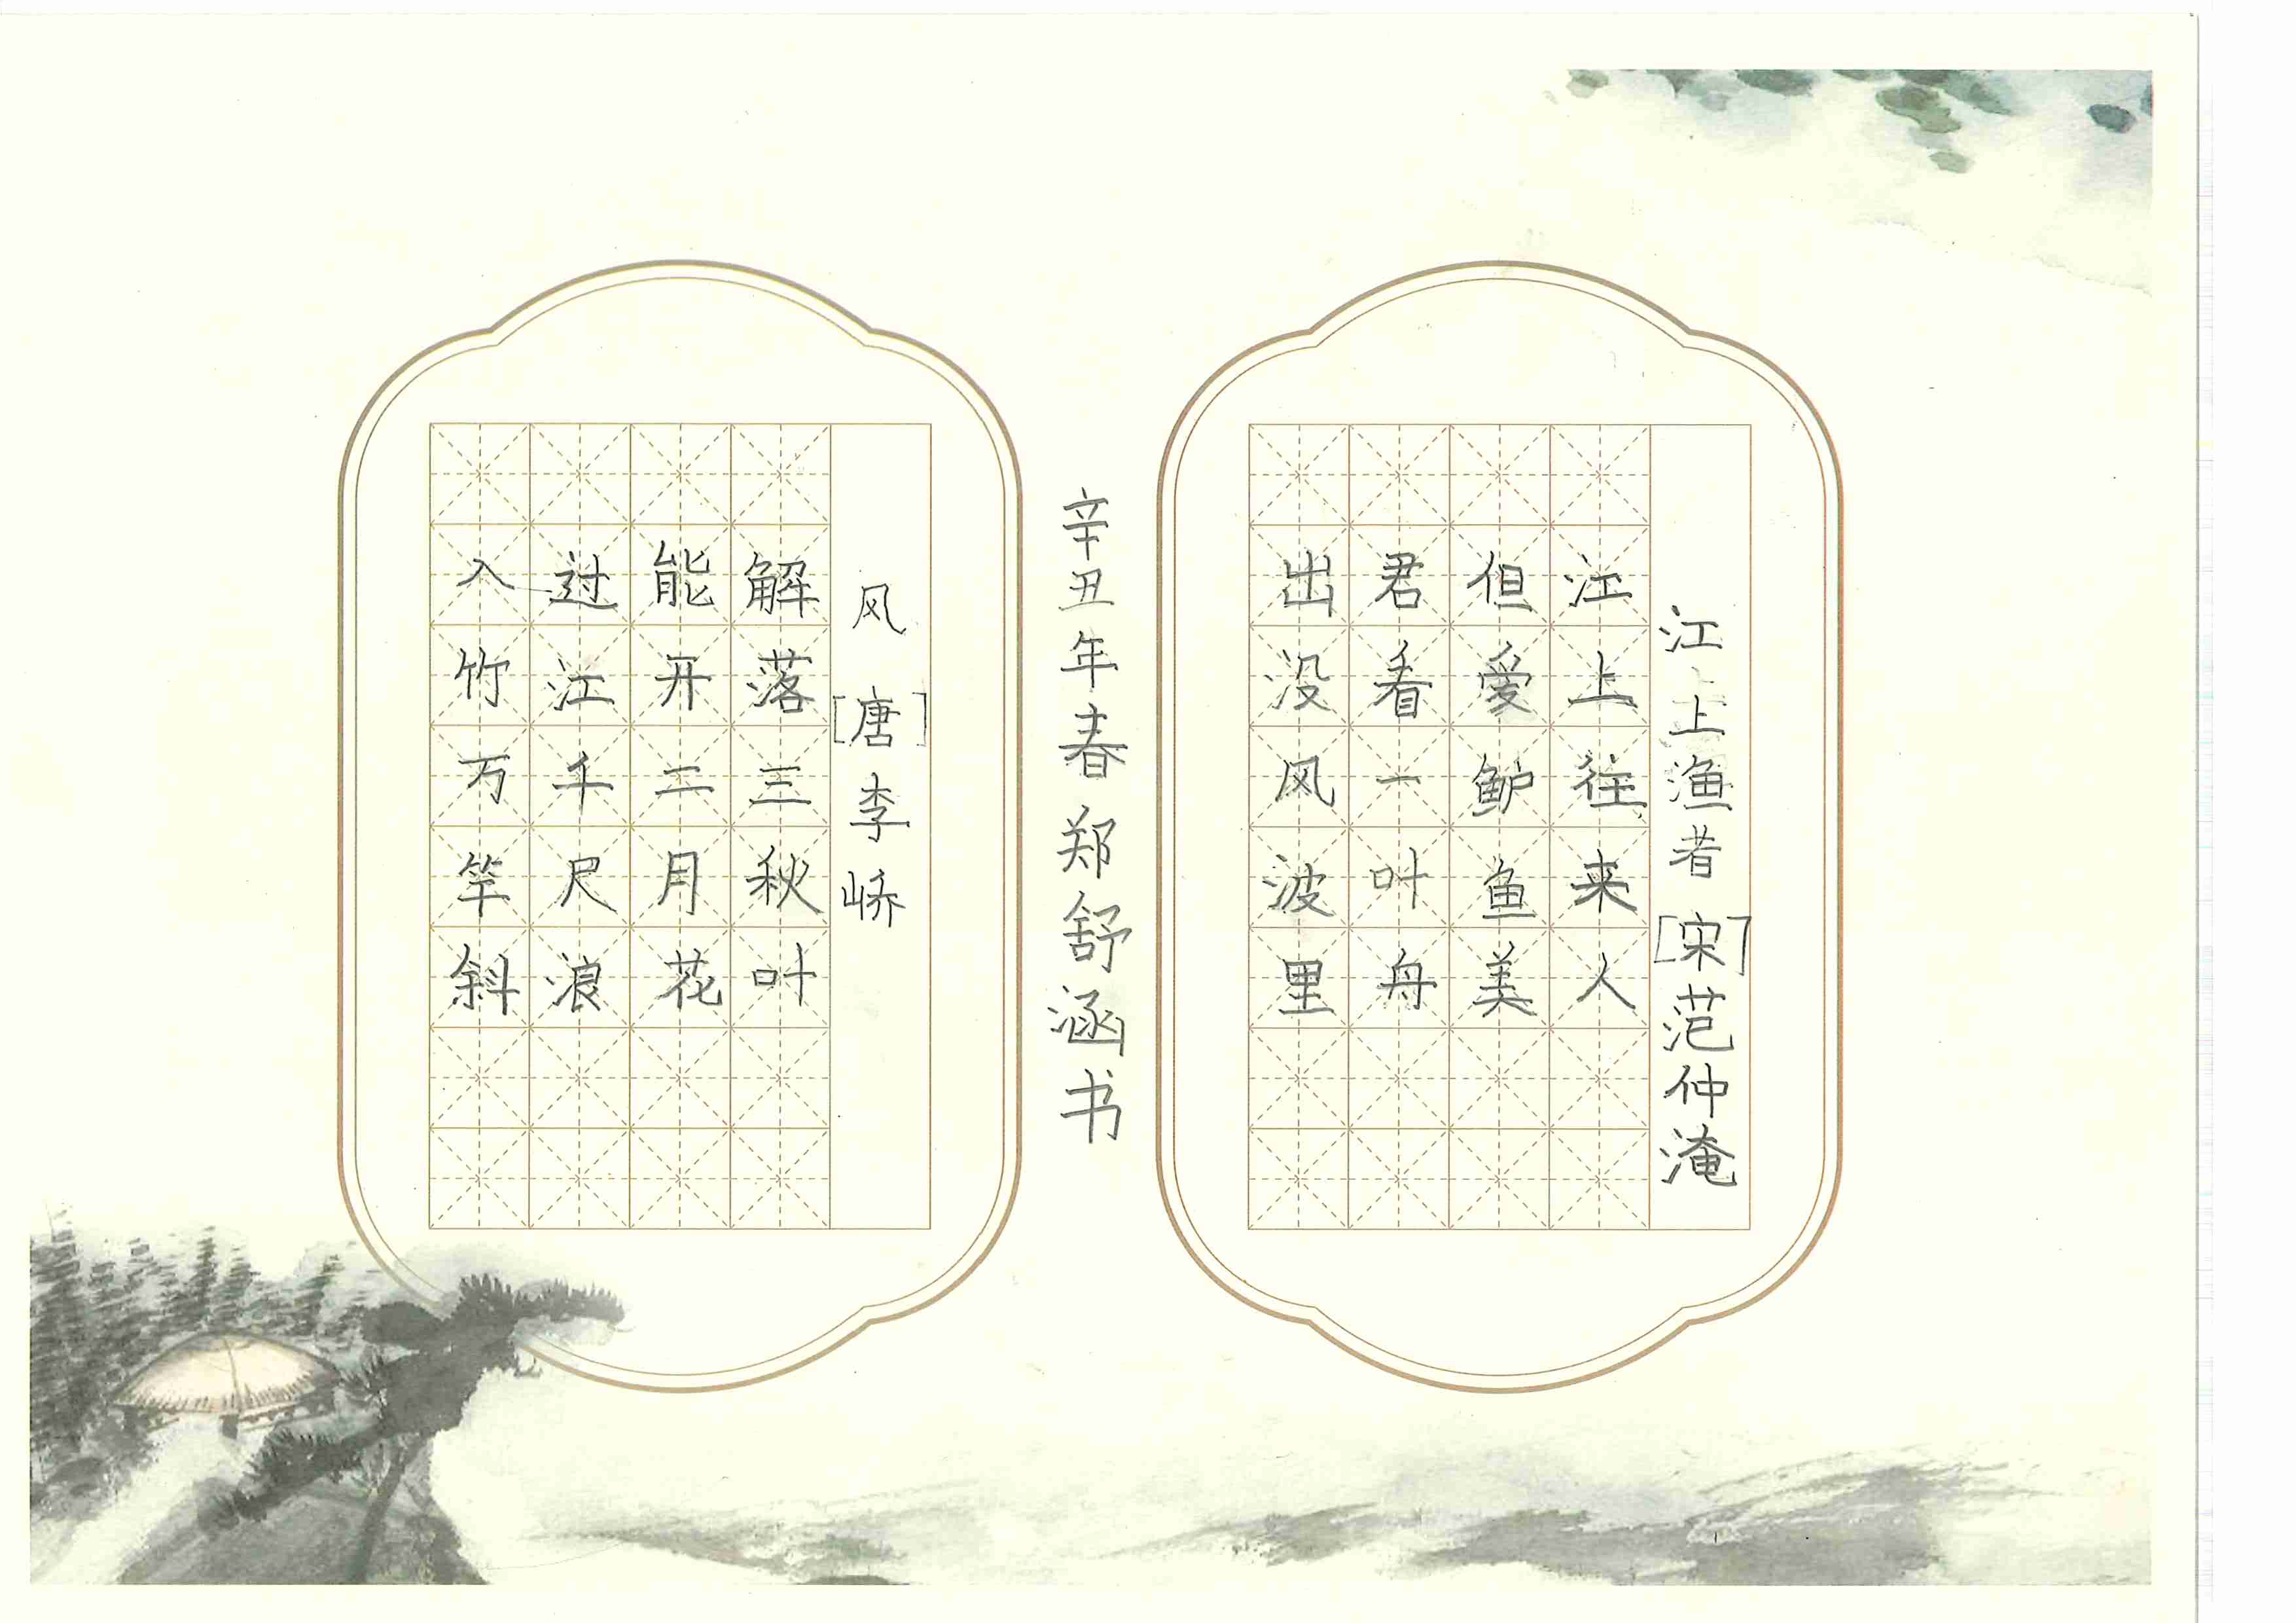 江上渔者[宋]范仲淹
江上往来人
但爱鲈鱼美
君看一叶舟
出没风波里
辛丑年春郑舒涵书
风[唐]李峤
解落三秋叶
能开二月花
过江千尺浪
入竹万竿斜